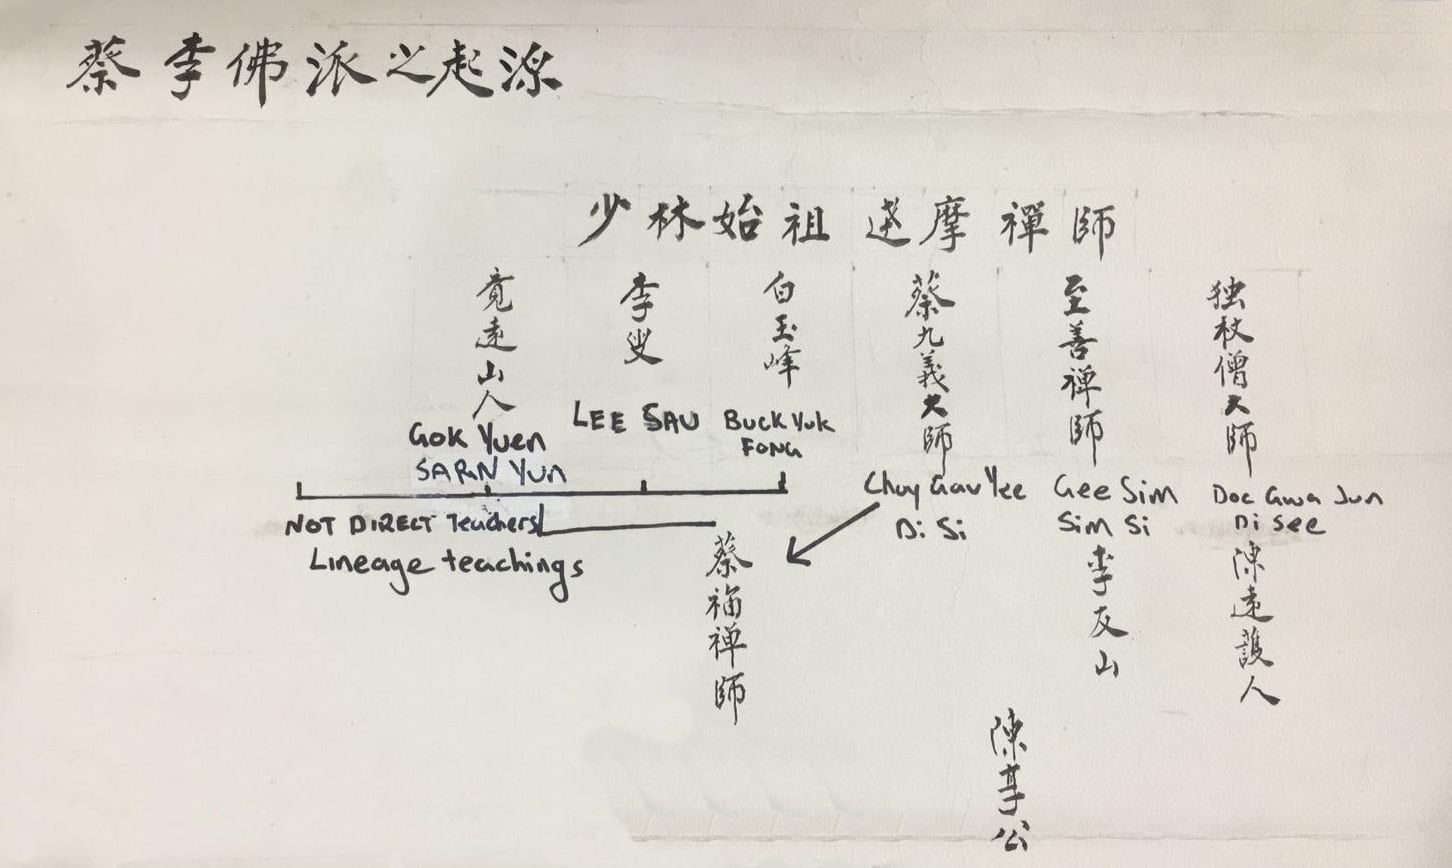 蔡李佛派之起源
少林始祖達摩禪師
竟遠山人
Gok Yuen
SARN YUN
李叟
LEE SAU
白玉峰
BUCK YUK
FONG
蔡九義大師
Choy Gau Yee
Di Si
至善禅師
Gee Sim
Sim Si
独杖僧大師
Doc Gwa Jun
Di See
NOT DIRECT Teachers
Lineage teachings
蔡福禅師
李友山
陳遠護人
陳享公